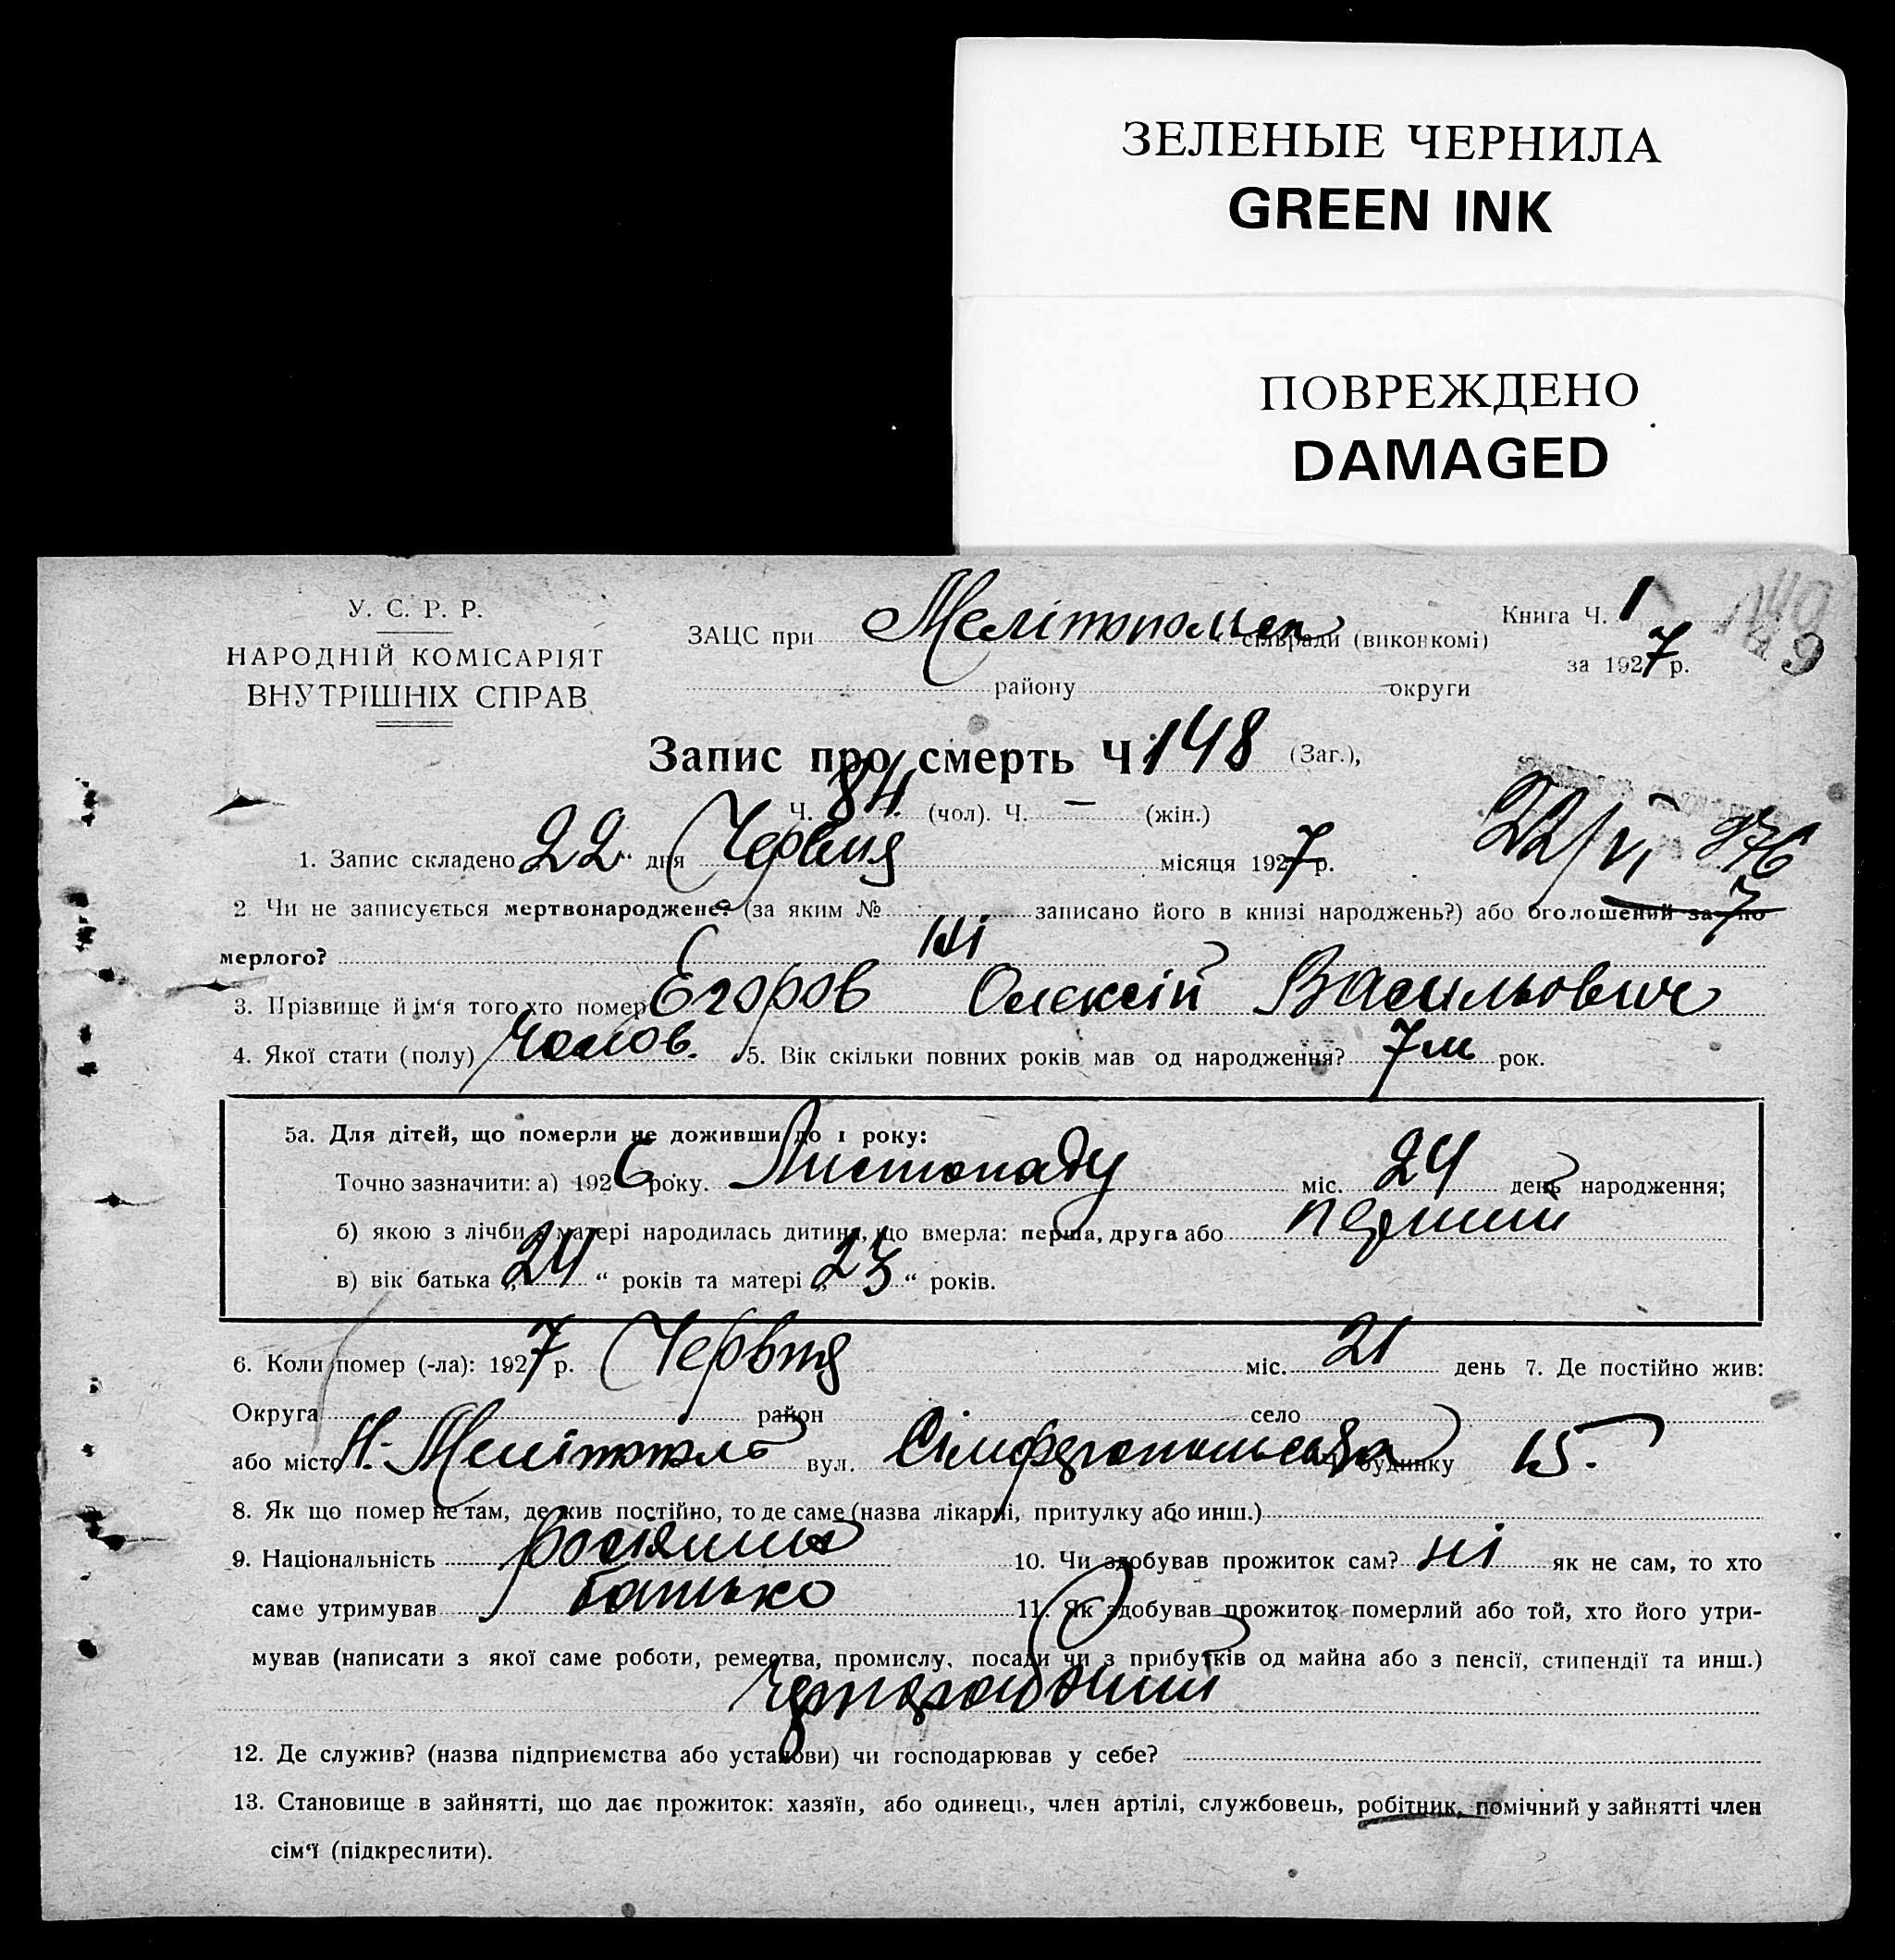 ЗЕЛЕНЫЕ ЧЕРНИЛА
GREEN INK
ПОВРЕЖДЕНО
DAMAGED
У. С. Р. Р.
НАРОДНІЙ КОМІСАРІЯТ
ВНУТРІШНІХ СПРАВ
ЗАЦС при сільради (виконкомі)
району округи
Книга Ч. 1
за 1927 р.
Запис про смерть Ч 148 (Заг.),
Ч. 84 (чол). Ч. — (жін.)
1. Запис складено „22“ дня Червня місяця 1927 р.
22/VI
2 Чи не записується мертвонароджене? (за яким № записано його в книзі народжень?) або оголошений за по
мерлого? Ні
3. Прізвище й ім'я того хто помер Егоров Олєксій Васильович
4. Якої стати (полу) Чолов. 5. Вік скільки повних років мав од народження? 7 м рок.
5а. Для дітей, що померли не доживши до 1 року:
Точно зазначити: а) 1926 року. Листопаду міс. 24 день народження;
б) якою з лічби у матері народилась дитина, що вмерла: перша, друга або перший
в) вік батька „24“ років та матері „23“ років.
6. Коли помер (-ла): 1927 р. Червня міс. 21 день 7. Де постійно жив:
Округа район село
або місто Н-Мелітополь вул. Сімферопольська будинку 15.
8. Як що помер не там, де жив постійно, то де саме (назва лікарні, притулку або инш.)
9. Національність росіянин 10. Чи здобував прожиток сам? ні як не сам, то хто
саме утримував батько 11. Як здобував прожиток померлий або той, хто його утри-
мував (написати з якої саме роботи, ремества, промислу, посади чи з прибутків од майна або з пенсії, стипендії та инш.)
12. Де служив? (назва підприємства або установи) чи господарював у себе?
13. Становище в зайнятті, що дає прожиток: хазяїн, або одинець, член артілі, службовець, робітник, помічний у зайнятті член
сім'ї (підкреслити).